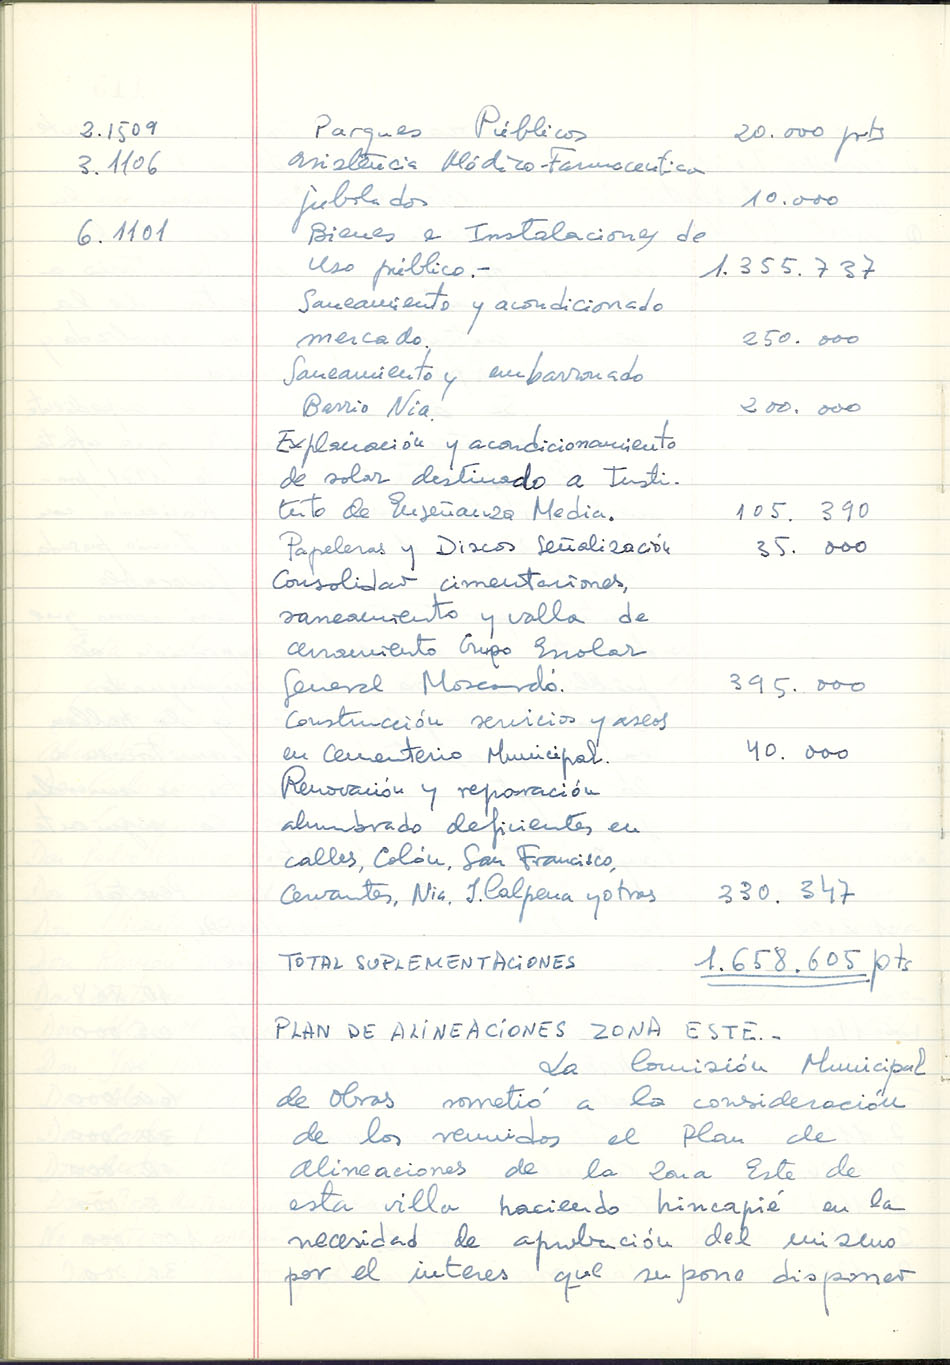 2.1509 Parques Públicos 20.000 pts
3.1106 Asistencia Médico-Farmaceutica
jubilados 10.000
6.1101 Bienes e Instalaciones de
uso público.- 1.355.737
Saneamiento y acondicionado
mercado. 250.000
Saneamiento y embarronado
Barrio Nia. 200.000
Explanación y acondicionamiento
de solar destinado a Insti-
tuto de Enseñanza Media. 105.390
Papeleras y Discos Señalización 35.000
Consolidar cimentaciones,
saneamiento y valla de
cerramiento Grupo Escolar
General Moscardó. 395.000
Construcción servicios y aseos
en Cementerio Municipal. 40.000
Renovación y reparación
alumbrado deficientes en
calles, Colón, San Francisco,
Cervantes, Nia, J. Calpena y otras 330.347
TOTAL SUPLEMENTACIONES 1.658.605 pts
PLAN DE ALINEACIONES ZONA ESTE.-
La Comisión Municipal
de Obras sometió a la consideración
de los reunidos el Plan de
alineaciones de la Zona Este de
esta villa haciendo hincapié en la
necesidad de aprobación del mismo
por el interes que supone disponer